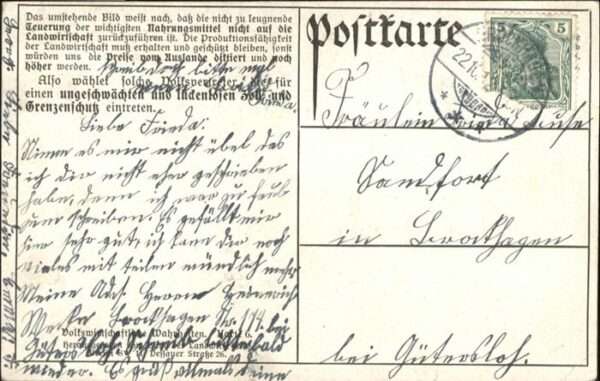 Das umstehende Bild weist nach, daß die nicht zu leugnende
Teuerung der wichtigsten Nahrungsmittel nicht auf die
Landwirtschaft zurückzuführen ist. Die Produktionsfähigkeit
der Landwirtschaft muß erhalten und geschützt bleiben, sonst
würden uns die Preise vom Auslande diktiert und noch
höher werden.
Also wählet solche Volksvertreter, die für
einen ungeschwächten und lückenlosen Zoll- und
Grenzenschutz eintreten.
Liebe Frieda!
Nimm es mir nicht übel das
ich dir nicht eher geschrieben
habe, denn ich war zu faul
zum schreiben. Es gefällt mir
hier sehr gut, ich kann dir noch
vieles mit teilen mündlich mehr
Meine Adr. Herrn Heinrich
Brockhagen Nr. 174. bei
Gütersloh. bald
wieder. Es grüßt deine
Frieda.
Volkswirtschaftliche Wahrheiten. Karte 6.
Dessauer Straße 26.
Postkarte
5
Fräulein Frieda
Sandfort
in Brockhagen
bei Gütersloh.